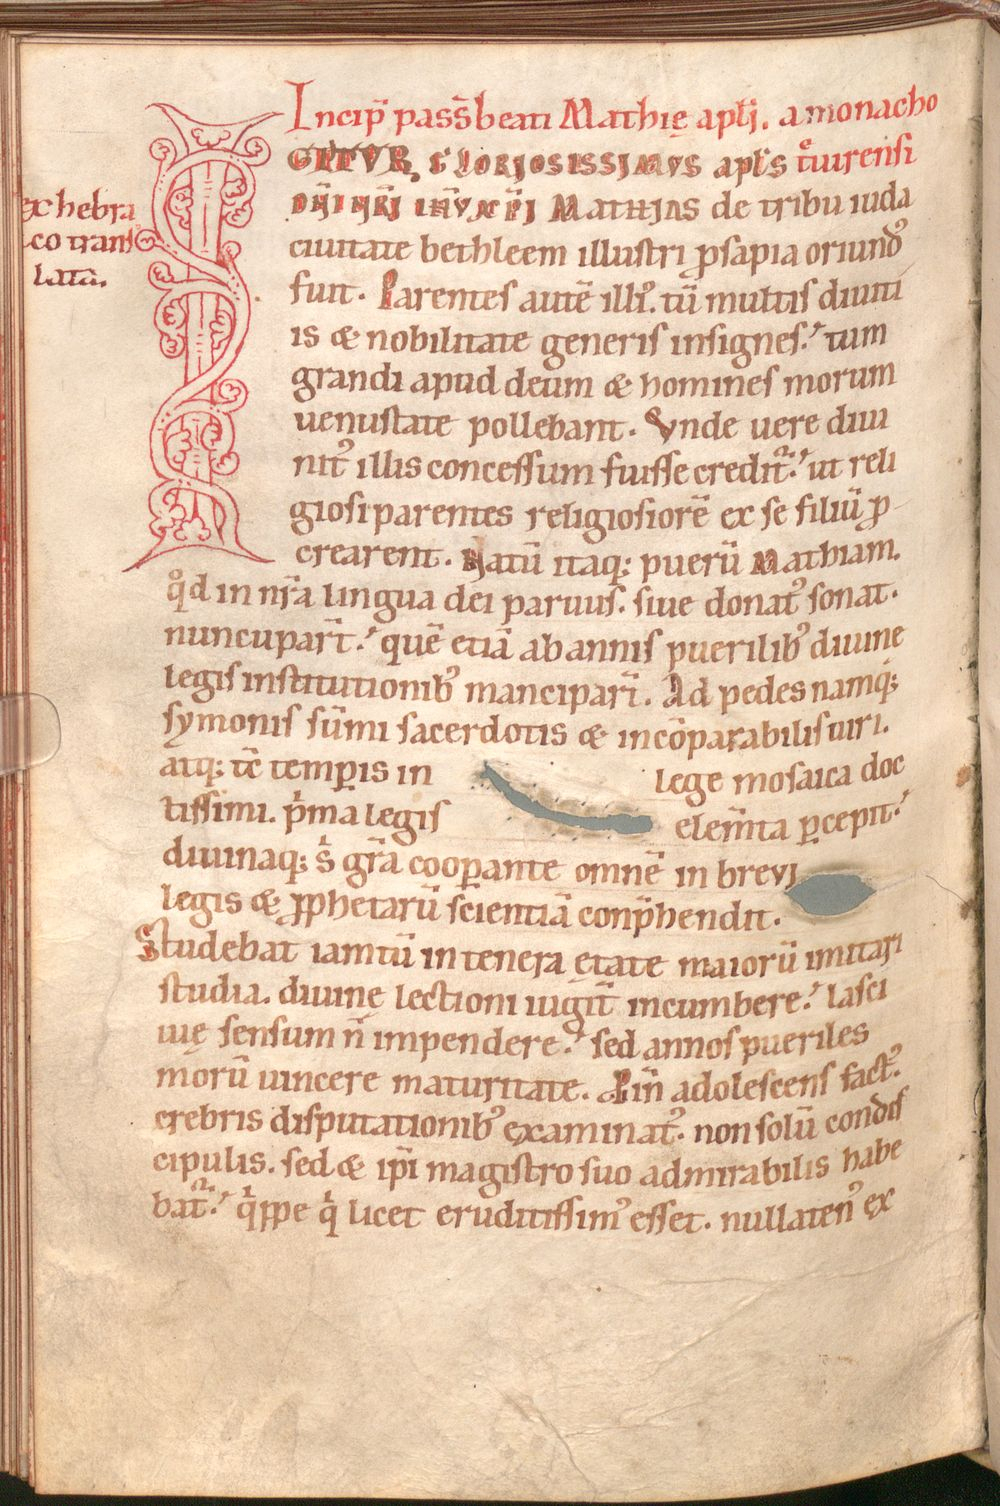 Incip̃ pass̃ beati Mathię apłi. a monacho
GITVR GLORIOSISSIMVS apłs t͛uirensi
DÑI ÑRI IHV XP̄I MATHIAS de tribu iuda
ex hebra
co trans
lata.
ciuitate bethleem illustri ꝓsapia oriundꝰ
fuit. Parentes autē illiꝰ. tū multis diuiti
is & nobilitate generis insignes. tum
grandi apud deum & homines morum
uenustate pollebant. Vnde uere diui
nitꝰ illis concessum fuisse credit᷑. ut reli
giosi parentes religiosiorē ex se filiū ꝓ
crearent. Natū itaq; puerū Mathiam.
qd̊ in nr̄a lingua dei paruus. siue donatꝰ sonat.
nuncupar̄t. quē etiā ab annis puerilibꝰ diuine
legis institutionibꝰ mancipar̄t. Ad pedes namq;
symonis sūmi sacerdotis & incōparabilis uiri.
atq; tc̄ temꝑis in lege mosaica doc
tissimi. p̄ma legis elem̄ta ꝑcepit.
diuinaq; s̄ gr̄a cooꝑante omnē in breui
legis & ꝓphetarū scientiā conp̄hendit.
Studebat iam tū in tenera ętate maiorū imitari
studia. diuinę lectioni iugit̄ incumbere. lasci
uię sensum n̄ impendere. sed annos pueriles
morū uincere maturitate. Pin̄ adolescens factꝰ.
crebris disputationibꝰ examinatꝰ. non solū condis
cipulis. sed & ip̄i magistro suo admirabilis habe
bat᷑. qͥppe qͥ licet eruditissimꝰ esset. nullatenꝰ ex